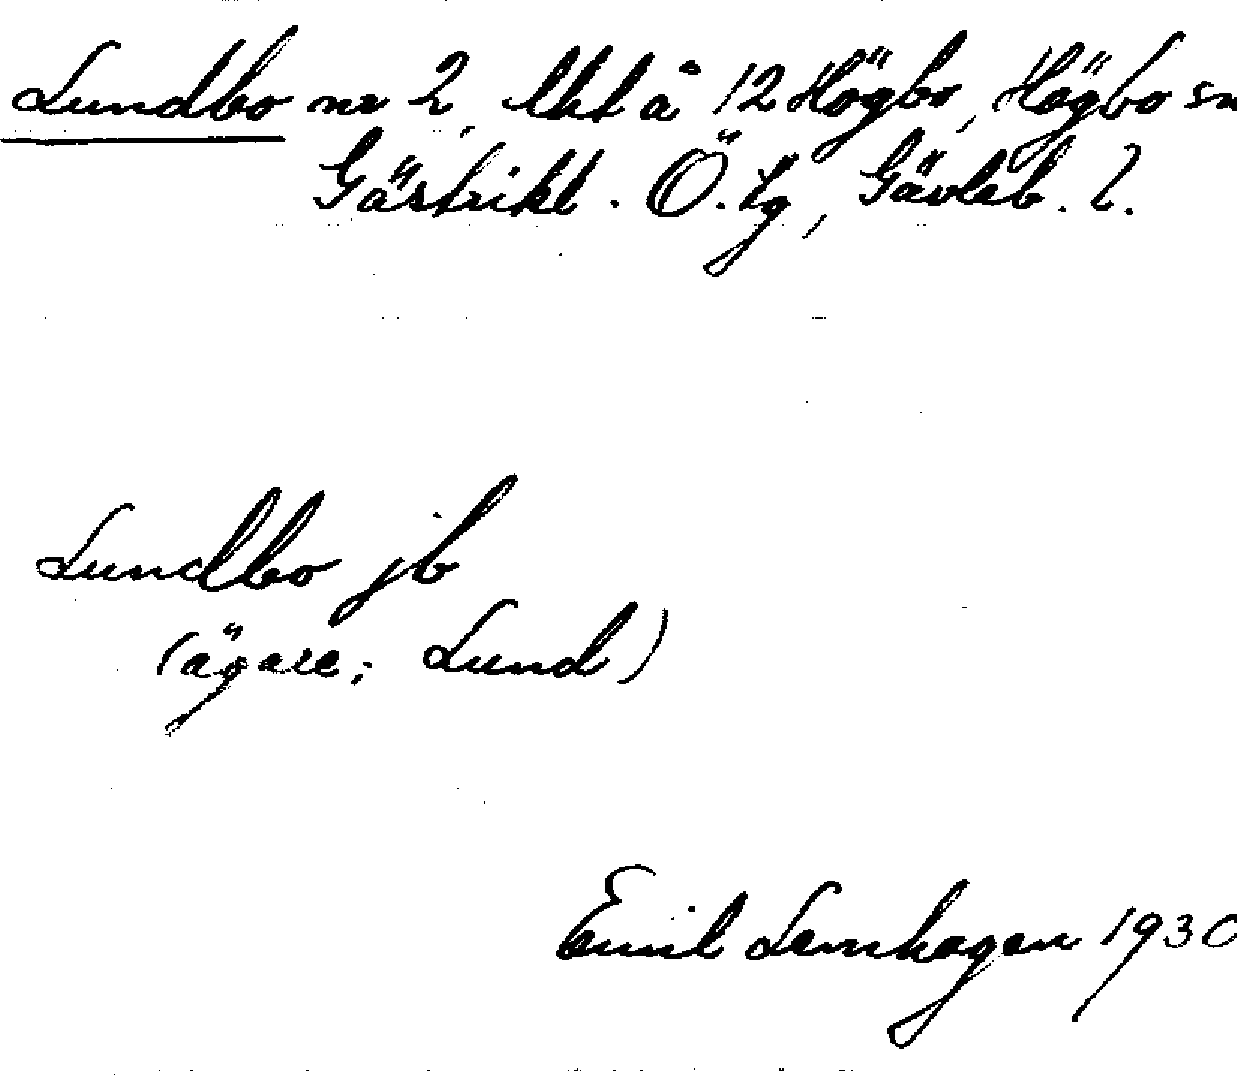 Lundbo nr 2, lht å 12 Högbo, Högbo sn
Gästrikl. Ö. tg, Gävleb. l.
Lundbo jb
(ägare: Lund)
Emil Lernhagen 1930